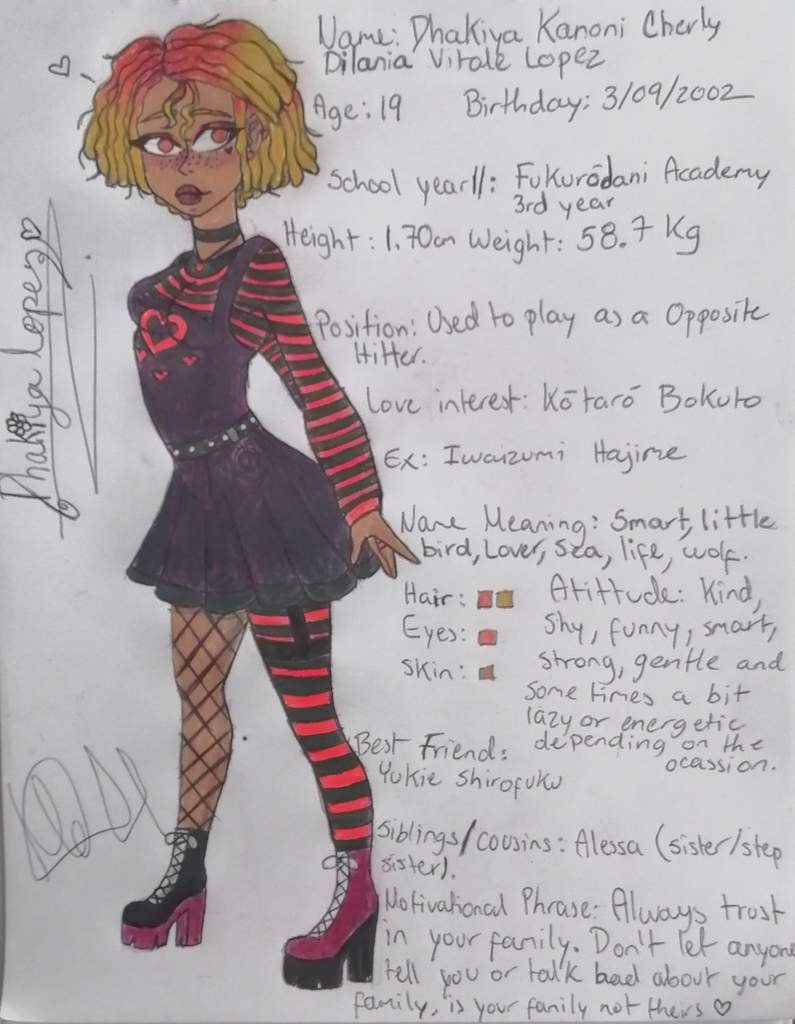 Name: Dhakiya Kanoni Cherly
Dilania Vitale Lopez
Age: 19 Birthday: 3/09/2002
School year//: Fukurōdani Academy
3rd year
Height: 1.70cm Weight: 58.7 Kg
Position: Used to play as a Opposite
Hitter.
Love interest: Kōtarō Bokuto
Ex: Iwaizumi Hajime
Name Meaning: Smart, little
bird, Lover, Sea, life, wolf.
Hair: Atittude: Kind,
Eyes: Shy, funny, smart,
Skin: strong, gentle and
some times a bit
lazy or energetic
depending on the
ocassion.
Best Friend:
Yukie Shirofuku
Siblings/cousins: Alessa (sister/step
sister).
Motivational Phrase: Always trust
in your family. Don't let anyone
tell you or talk bad about your
family, is your family not theirs ♡
Dhakiya Lopez ♡